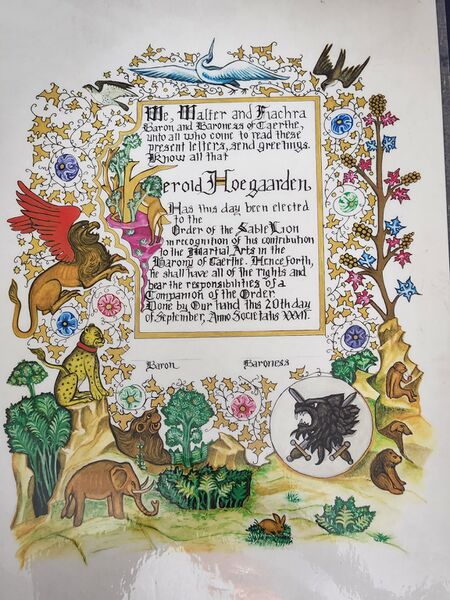 We, Walter and Fiachra
Baron and Baroness of Caerthe,
unto all who come to read these
present letters, send greetings.
Know all that
Herold Hoegaarden
Has this day been elected
to the
Order of the Sable Lion
in recognition of his contribution
to the Martial Arts in the
Barony of Caerthe. Hence forth,
he shall have all of the rights and
bear the responsibilities of a
Companion of the Order
Done by Our hand this 20th day
of September, Anno Societatis XXXII.
Baron Baroness